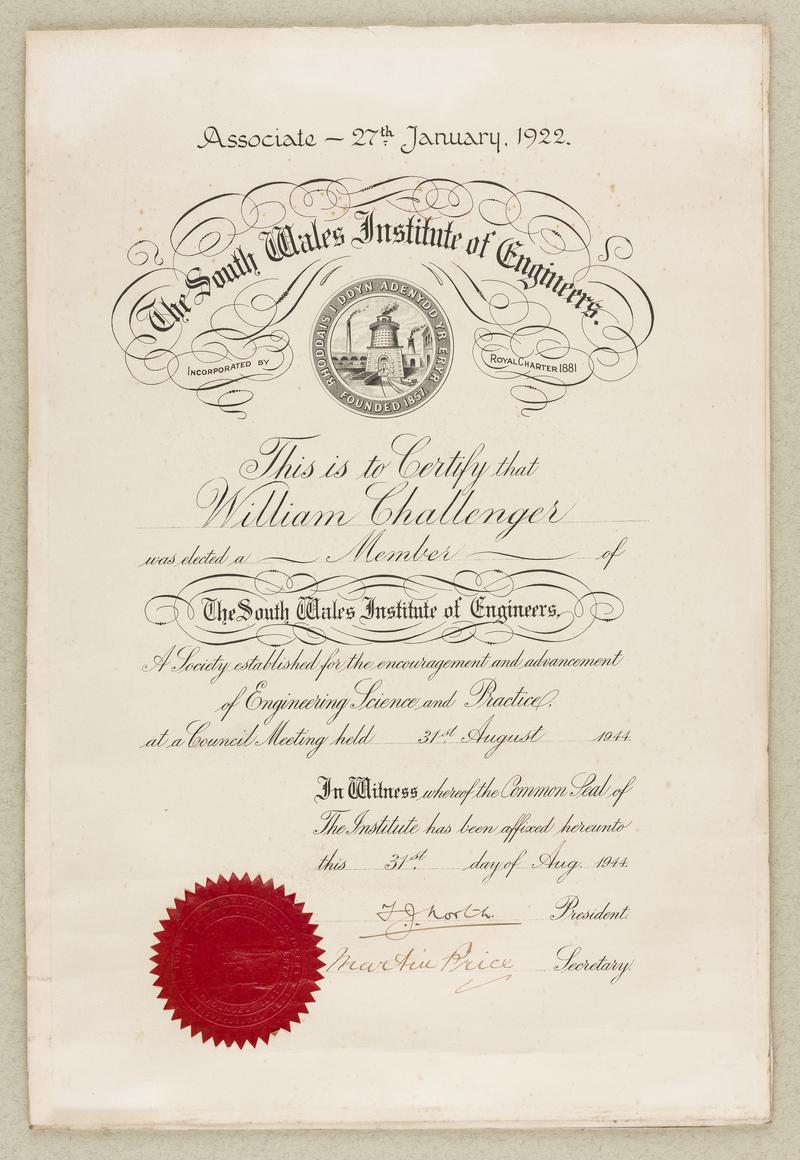 Associate — 27th January, 1922.
The South Wales Institute of Engineers.
RHODDAIS I DDYN ADENYDD YR ERYR
FOUNDED 1857
INCORPORATED BY
ROYAL CHARTER 1881
This is to Certify that
William Challenger
was elected a — Member — of
The South Wales Institute of Engineers,
A Society established for the encouragement and advancement
of Engineering Science and Practice.
at a Council Meeting held 31st August 1944.
In Witness whereof the Common Seal of
The Institute has been affixed hereunto
this 31st day of Aug. 1944.
F.J. North. President.
Martin Price Secretary.